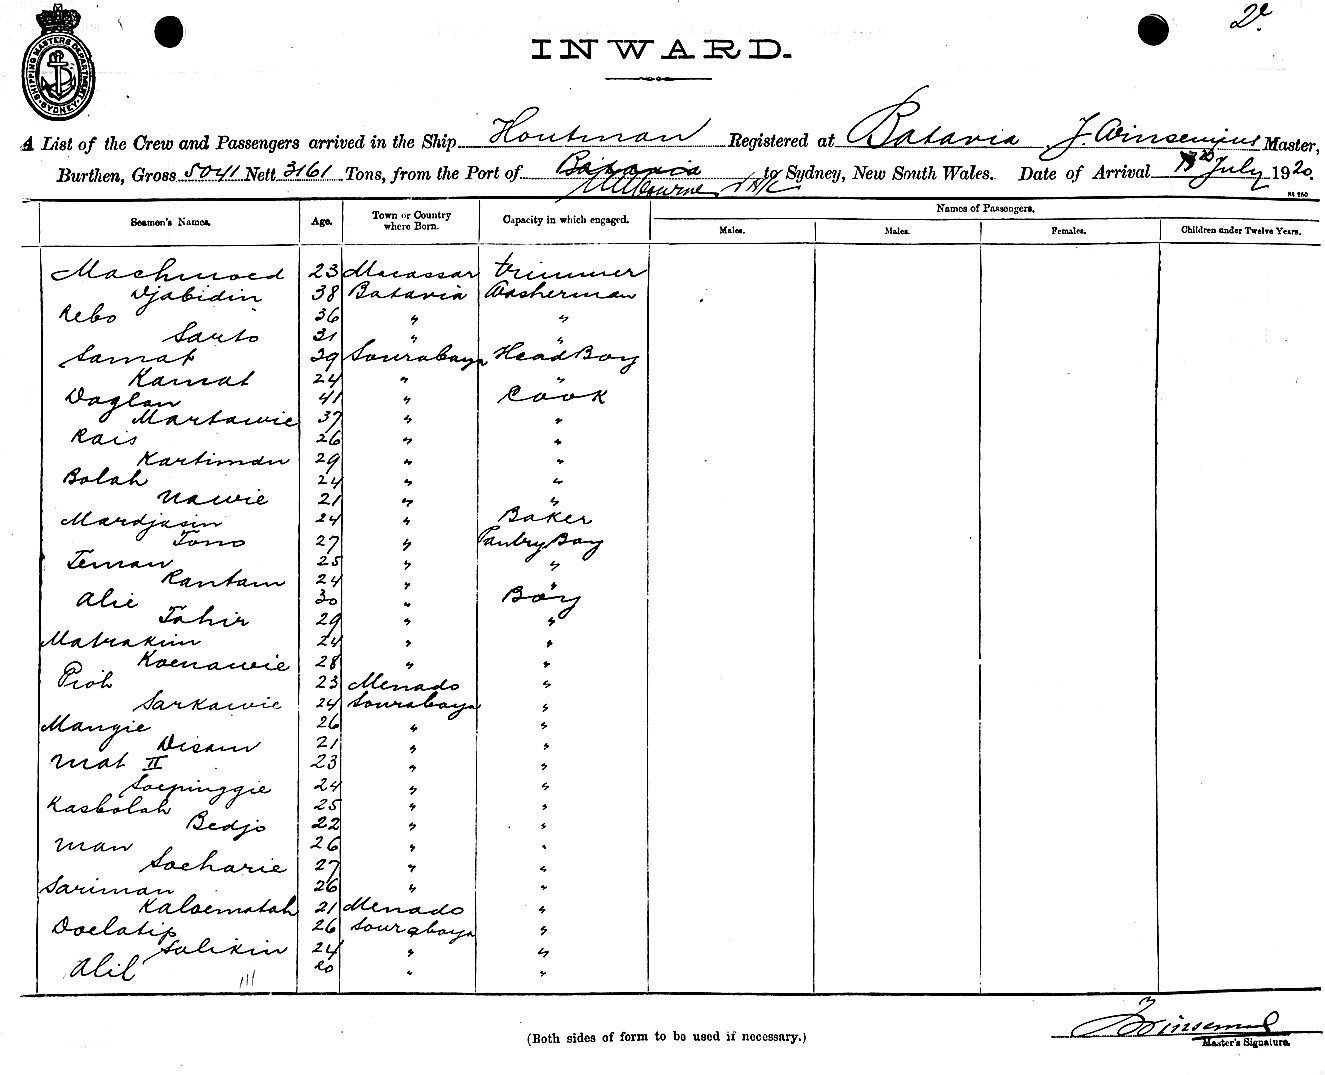 2e
INWARD.
SHIPPING MASTERS DEPARTMENT SYDNEY
A List of the Crew and Passengers arrived in the Ship Houtman Registered at Batavia J. Winsemius Master,
Burthen, Gross 5041 Nett 3161 Tons, from the Port of Batavia Melbourne to Sydney, New South Wales. Date of Arrival 20 July 1920.
Seamen's Names. Age. Town or Country where Born. Capacity in which engaged. Names of Passengers.
Males. Males. Females. Children under Twelve Years.
Machmoed 23 Macassar trimmer
Djabidin 38 Batavia Washerman
Rebo 36 " "
Sarto 31 " "
Samat 39 Sourabaya Head Boy
Kamat 24 " "
Daglan 41 " Cook
Martawie 37 " "
Rais 26 " "
Kartiman 29 " "
Bolah 24 " "
Nawie 21 " "
Mardjasin 24 " Baker
Tono 27 " Pantry Boy
Teman 25 " "
Rantam 24 " "
Alie 30 " Boy
Tahir 29 " "
Matrakim 24 " "
Koenawie 28 " "
Pioh 23 Menado "
Sarkawie 24 Sourabaya "
Mangie 26 " "
Disam 21 " "
Mat II 23 " "
Soepinggie 24 " "
Kasbolah 25 " "
Bedjo 22 " "
Man 26 " "
Soeharie 27 " "
Sariman 26 " "
Kaloematah 21 Menado "
Doelatip 26 Sourabaya "
Salikin 24 " "
Alil 20 " "
(Both sides of form to be used if necessary.)
J Winsemius
Master's Signature.